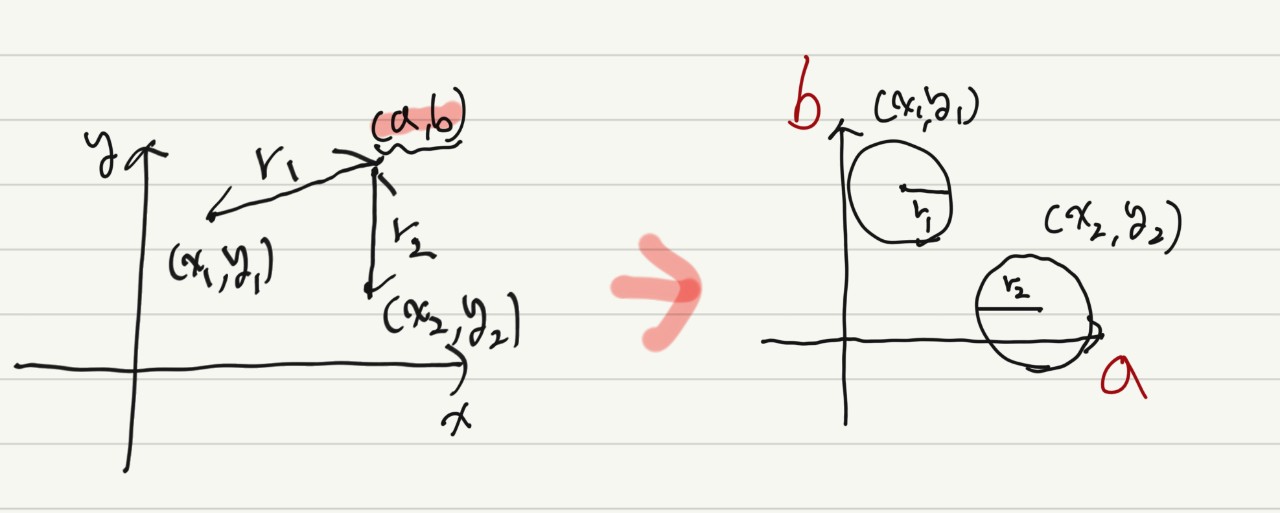 y
r₁
(a,b)
(x₁,y₁)
r₂
(x₂,y₂)
x
b
(x₁,y₁)
r₁
(x₂,y₂)
r₂
a